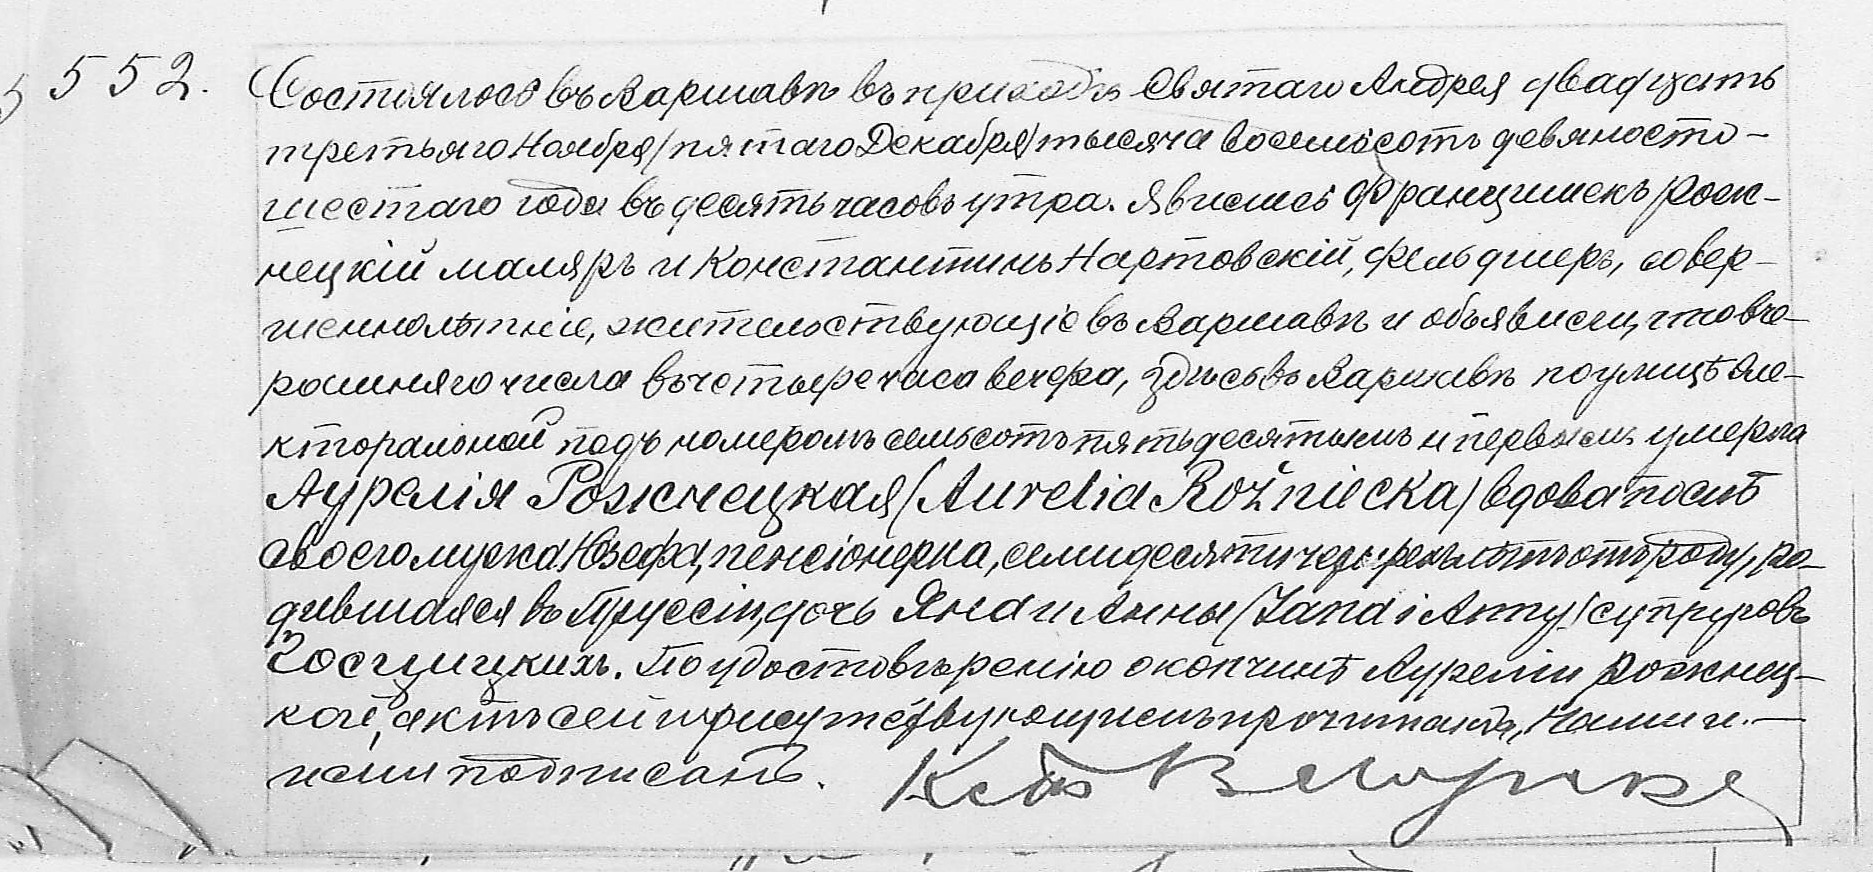 552.
Состоялось въ Варшавѣ въ приходѣ Святаго Андрея двадцать
третьяго Ноября/пятаго Декабря/тысяча восемьсотъ девяносто-
шестаго года въ десять часовъ утра. Явились Францишекъ Рож-
нецкій маляръ и Константинъ Нартовскій, фельдшеръ, совер-
шеннолѣтніе, жительствующіе въ Варшавѣ и объявили, что вче-
рашняго числа въ четыре часа вечера, здѣсь въ Варшавѣ по улицѣ Эле-
кторальной подъ номеромъ семьсотъ пятьдесятымъ и первымъ умерла
Аурелія Рожнецкая (Aurelia Rożniecka) вдова послѣ
своего мужа Юзефа, пенсіонерка, семидесяти четырехъ лѣтъ отъ роду, ро-
дившаяся въ Пруссіи, дочь Яна и Анны (Jana i Anny) супруговъ
По удостовѣренію о кончинѣ Ауреліи Рожнец-
кой, актъ сей присутствующимъ прочитанъ, Нами и.-
ими подписанъ.